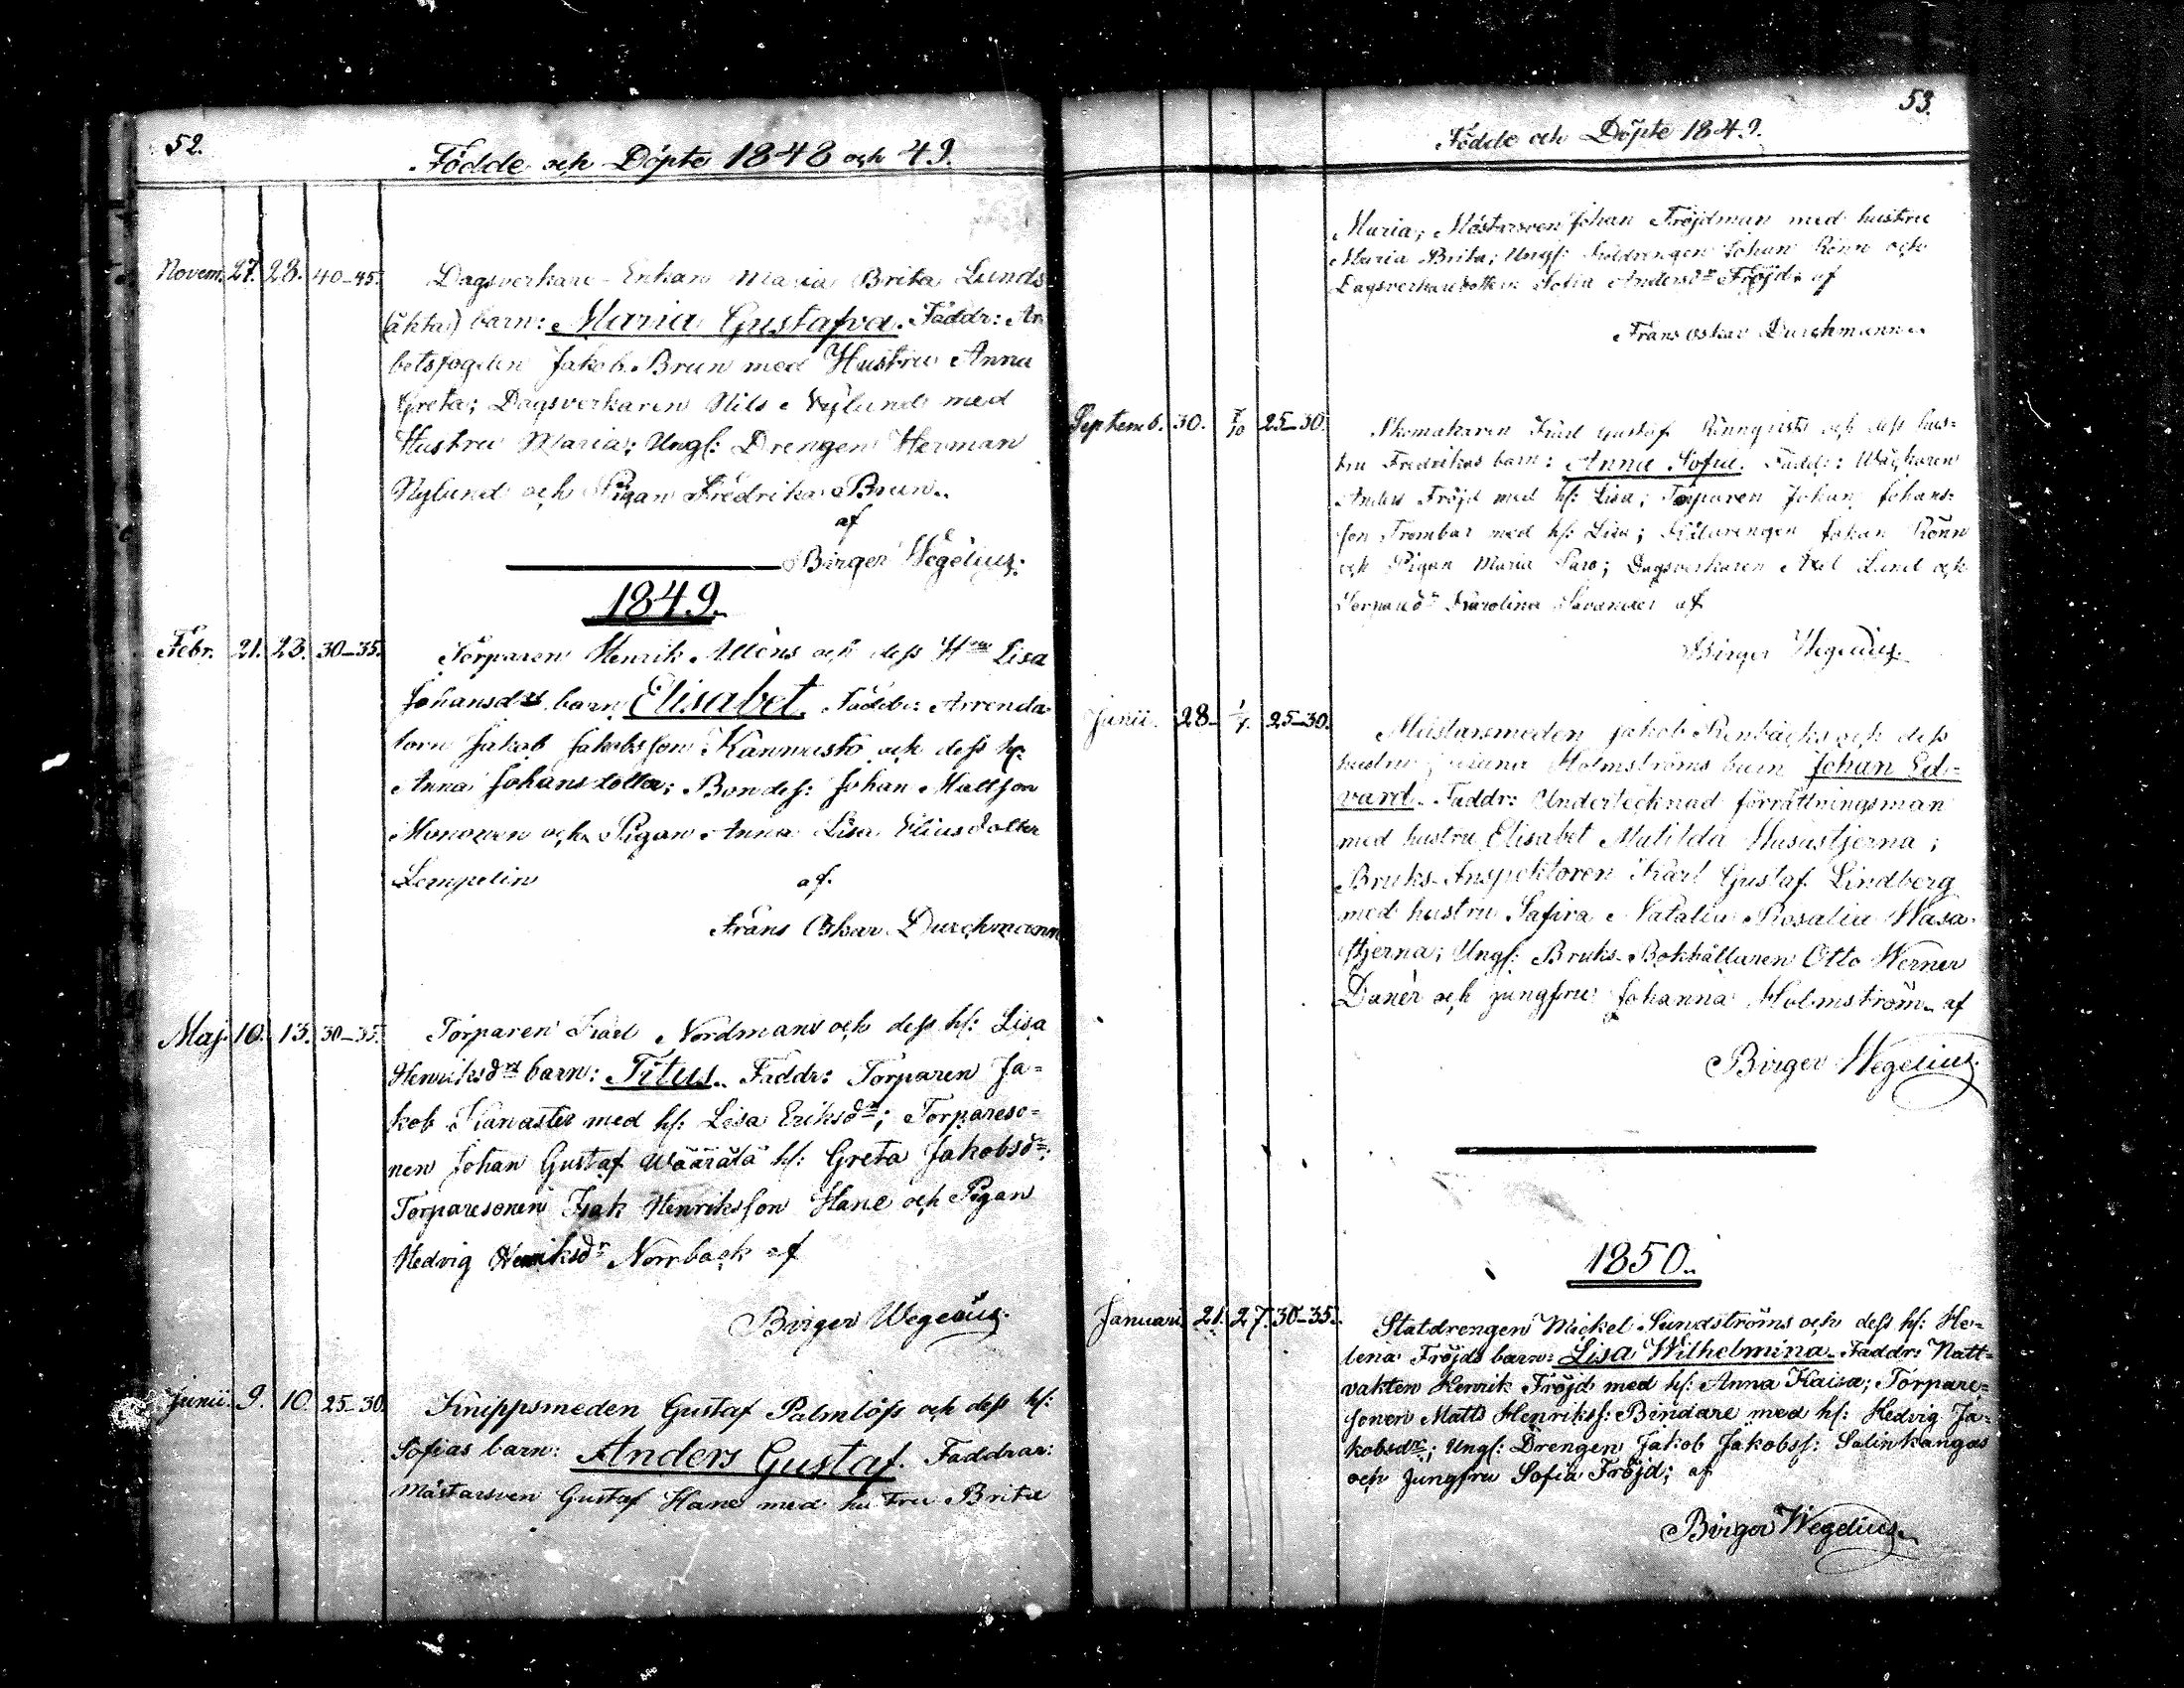 52.
Födde och Döpte 1848 och 49.
Novem. 27. 28. 40-45. Dagsverkare-Enkan Maria Brita Lunds
(äkta) barn: Maria Gustafva. Faddr: Ar
betsfogden Jakob Brun med Hustru Anna
Greta; Dagsverkaren Nils Nylund med
Hustru Maria; Ungl: Drengen Herman
Nylund och Pigan Fredrika Brun.
af
Birger Wegelius.
1849.
Febr. 21. 23. 30-35. Torparen Henrik Allens och dess Hru Lisa
Johansdrs barn Elisabet. Faddr: Arrenda
torn Jakob Jakobsson Kannusto och dess h:
Anna Johansdotter; Bondes: Johan Mattsson
Mononen och Pigan Anna Lisa Eliasdotter
Lempelin af.
Frans Oskar Durchmann
Maj. 10. 13. 30-35. Torparen Karl Nordmans och dess hs: Lisa
Henriksdrs barn: Titus. Faddr: Torparen Ja=
kob Kanaster med hs: Lisa Eriksdr; Torpareso=
nen Johan Gustaf Wäärälä hs: Greta Jakobsdr;
Torparesonen Isak Henriksson Hane och Pigan
Hedvig Henriksdr Norrback af
Birger Wegelius.
Junii. 9. 10. 25-30. Knippsmeden Gustaf Palmlöfs och dess hs:
Sofias barn: Anders Gustaf. Faddrar:
Mästarsven Gustaf Hane med hustru Brita
53.
Födde och Döpte 1849.
Maria; Mästarsven Johan Fröjdman med hustru
Maria Brita; Ungl: Johan Rönn och
Dagsverkaredottern Sofia Andersdr Fröjd. af
Frans Oskar Durchmann.
Septemb. 30. 7/10 25-30. Skomakaren Karl Gustaf Rönnqvists och dess hus=
tru Fredrikas barn: Anna Sofia. Faddr:
Anders Fröjd med hs: Lisa; Torparen Johan Johans=
son Trombar med hs: Lisa; Johan Rönn
och Pigan Maria; Dagsverkaren Axel Lund och
Karolina af
Birger Wegelius.
Junii. 28. 1/7. 25-30. Mästarsmeden Jakob Renbäcks och dess
hustru Holmströms barn Johan Ed=
vard. Faddr: Undertecknad förrättningsman
med hustru Elisabet Matilda Wasastjerna;
Bruks-Inspektoren Karl Gustaf Lindberg
med hustru Safira Natalia Rosalia Wasa=
stjerna; Ungl: Bruks-Bokhållaren Otto Werner
Danér och jungfru Johanna Holmström. af
Birger Wegelius.
1850.
Januari 21. 27. 30-35. Statdrengen Mickel Sundströms och dess hs: He=
lena Fröjds barn: Lisa Wilhelmina. Faddr: Natt=
vakten Henrik Fröjd med hs: Anna Kaisa; Torpare=
sonen Matts Henrikss: Bindare med hs: Hedvig Ja=
kobsdr; Ungl: Drengen Jakob Jakobss: Salinkangas
och Jungfru Sofia Fröjd; af
Birger Wegelius.